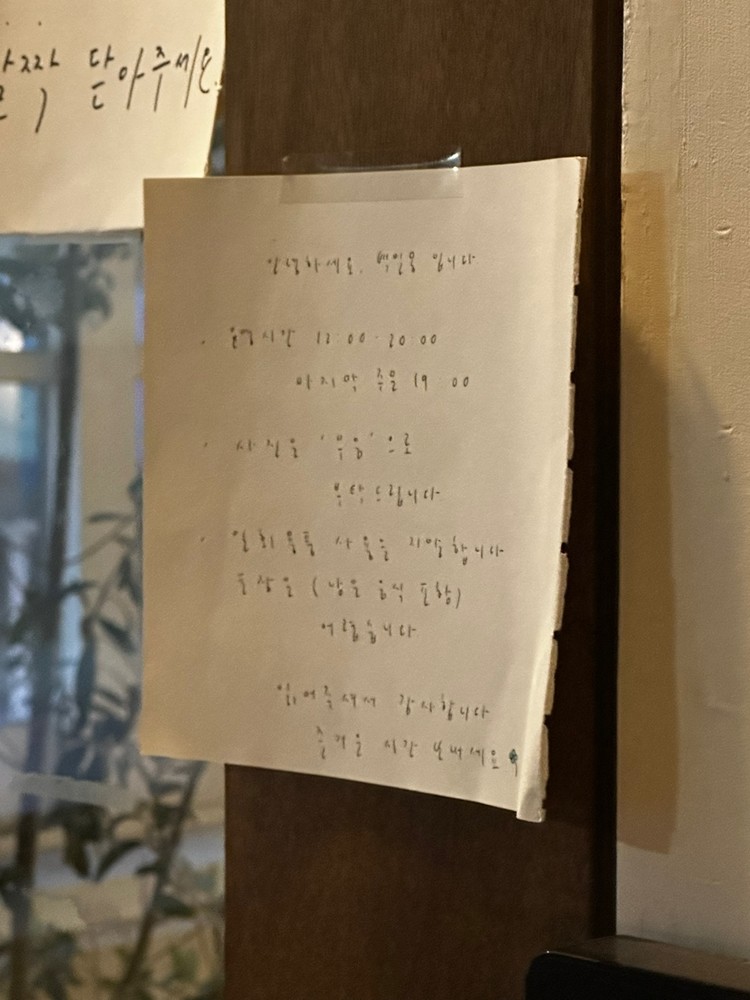 닫아주세요.
안녕하세요, 백일몽 입니다.
· 운영시간 12:00-20:00
마지막 주문 19:00
· 사진은 '무음'으로
부탁드립니다.
· 일회용품 사용을 지양합니다
포장은 (남은 음식 포함)
어렵습니다
읽어주셔서 감사합니다
즐거운 시간 보내세요